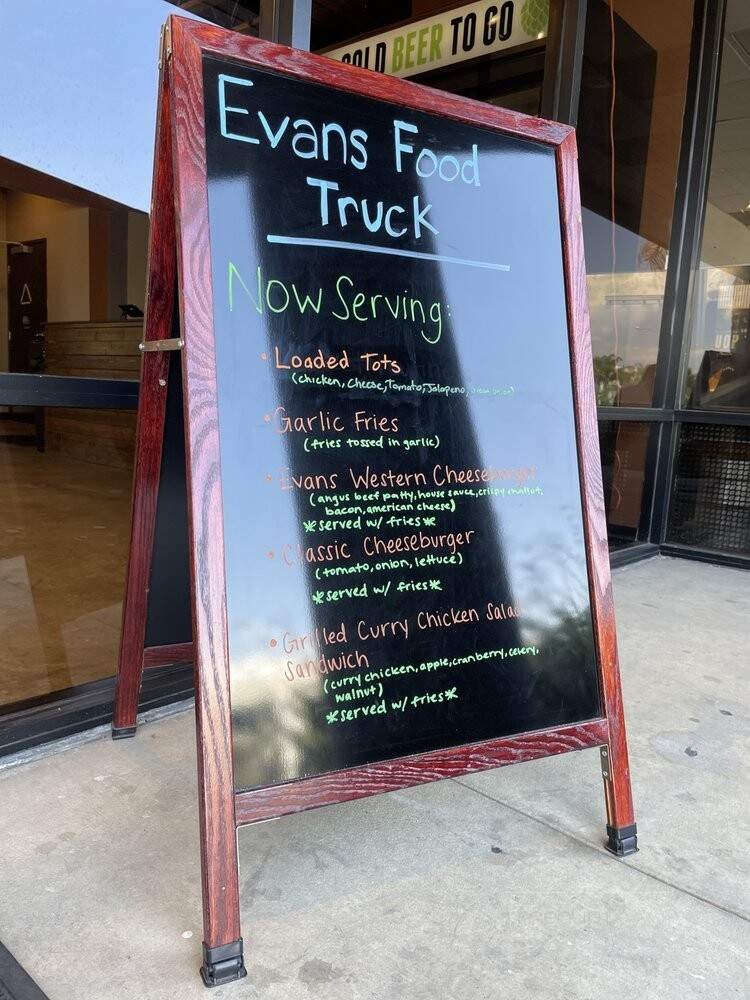 COLD BEER TO GO
Evans Food
Truck
Now Serving:
• Loaded Tots
(chicken, cheese, Tomato, Jalapeno,
• Garlic Fries
(fries tossed in garlic)
• Evans Western Cheeseburger
(angus beef patty, house sauce, crispy
bacon, american cheese)
*served w/ fries*
• Classic Cheeseburger
(tomato, onion, lettuce)
*served w/ fries*
• Grilled Curry Chicken Salad
Sandwich
(curry chicken, apple, cranberry, celery,
walnut)
*served w/ fries*
HOP